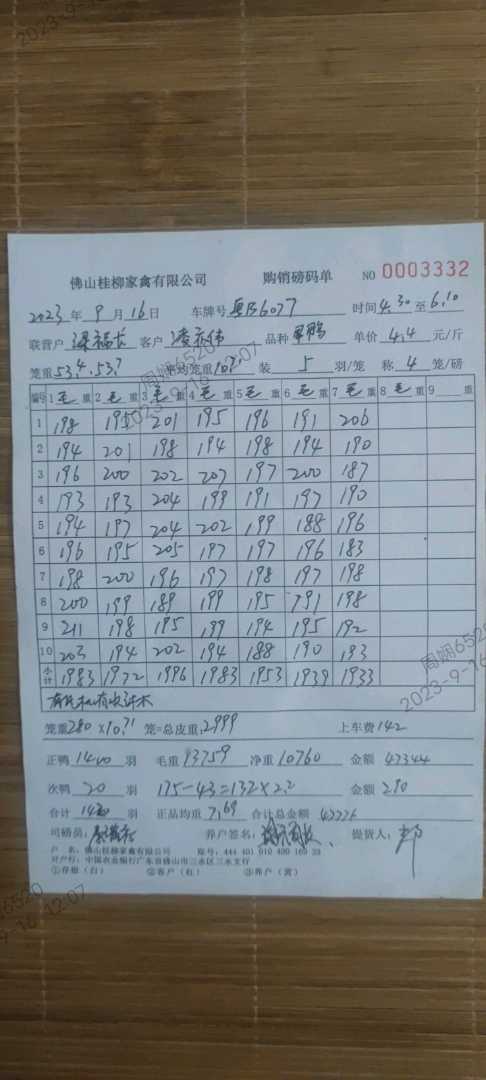 佛山桂柳家禽有限公司 购销磅码单 NO 0003332
2023年 9月16日 车牌号 时间 4.30 至 6.10
联营户 客户 品种 单价 4.4 元/斤
笼重 53.4.53.7 平均笼重 10.71 装 5 羽/笼 称 4 笼/磅
编号 1毛重 2毛重 3毛重 4毛重 5毛重 6毛重 7毛重 8毛重 9 重
1 198 195 201 195 196 191 206
2 194 201 198 194 198 194 190
3 196 200 202 207 197 200 187
4 193 193 204 199 191 197 190
5 194 197 204 202 199 188 196
6 196 195 205 197 197 196 183
7 198 200 196 197 198 197 198
8 200 199 189 199 195 191 198
9 211 198 195 199 194 195 192
10 203 194 202 194 188 190 193
小计 1983 1972 1996 1983 1953 1939 1933
笼重 280×10.71 笼=总皮重 2999 上车费 142
正鸭 1400 羽 毛重 13759 净重 10760 金额 47344
次鸭 20 羽 175-43=132×2.2 金额 290
合计 1420 羽 正品均重 7.69 合计总金额
司磅员: 养户签名: 提货人:
户 名:佛山桂柳家禽有限公司 账号:444 401 010 400 169 39
开户行:中国农业银行广东省佛山市三水区三水支行
①存根(白) ②客户(红) ③养户(黄)
周娴6520
2023-9-16 12:07